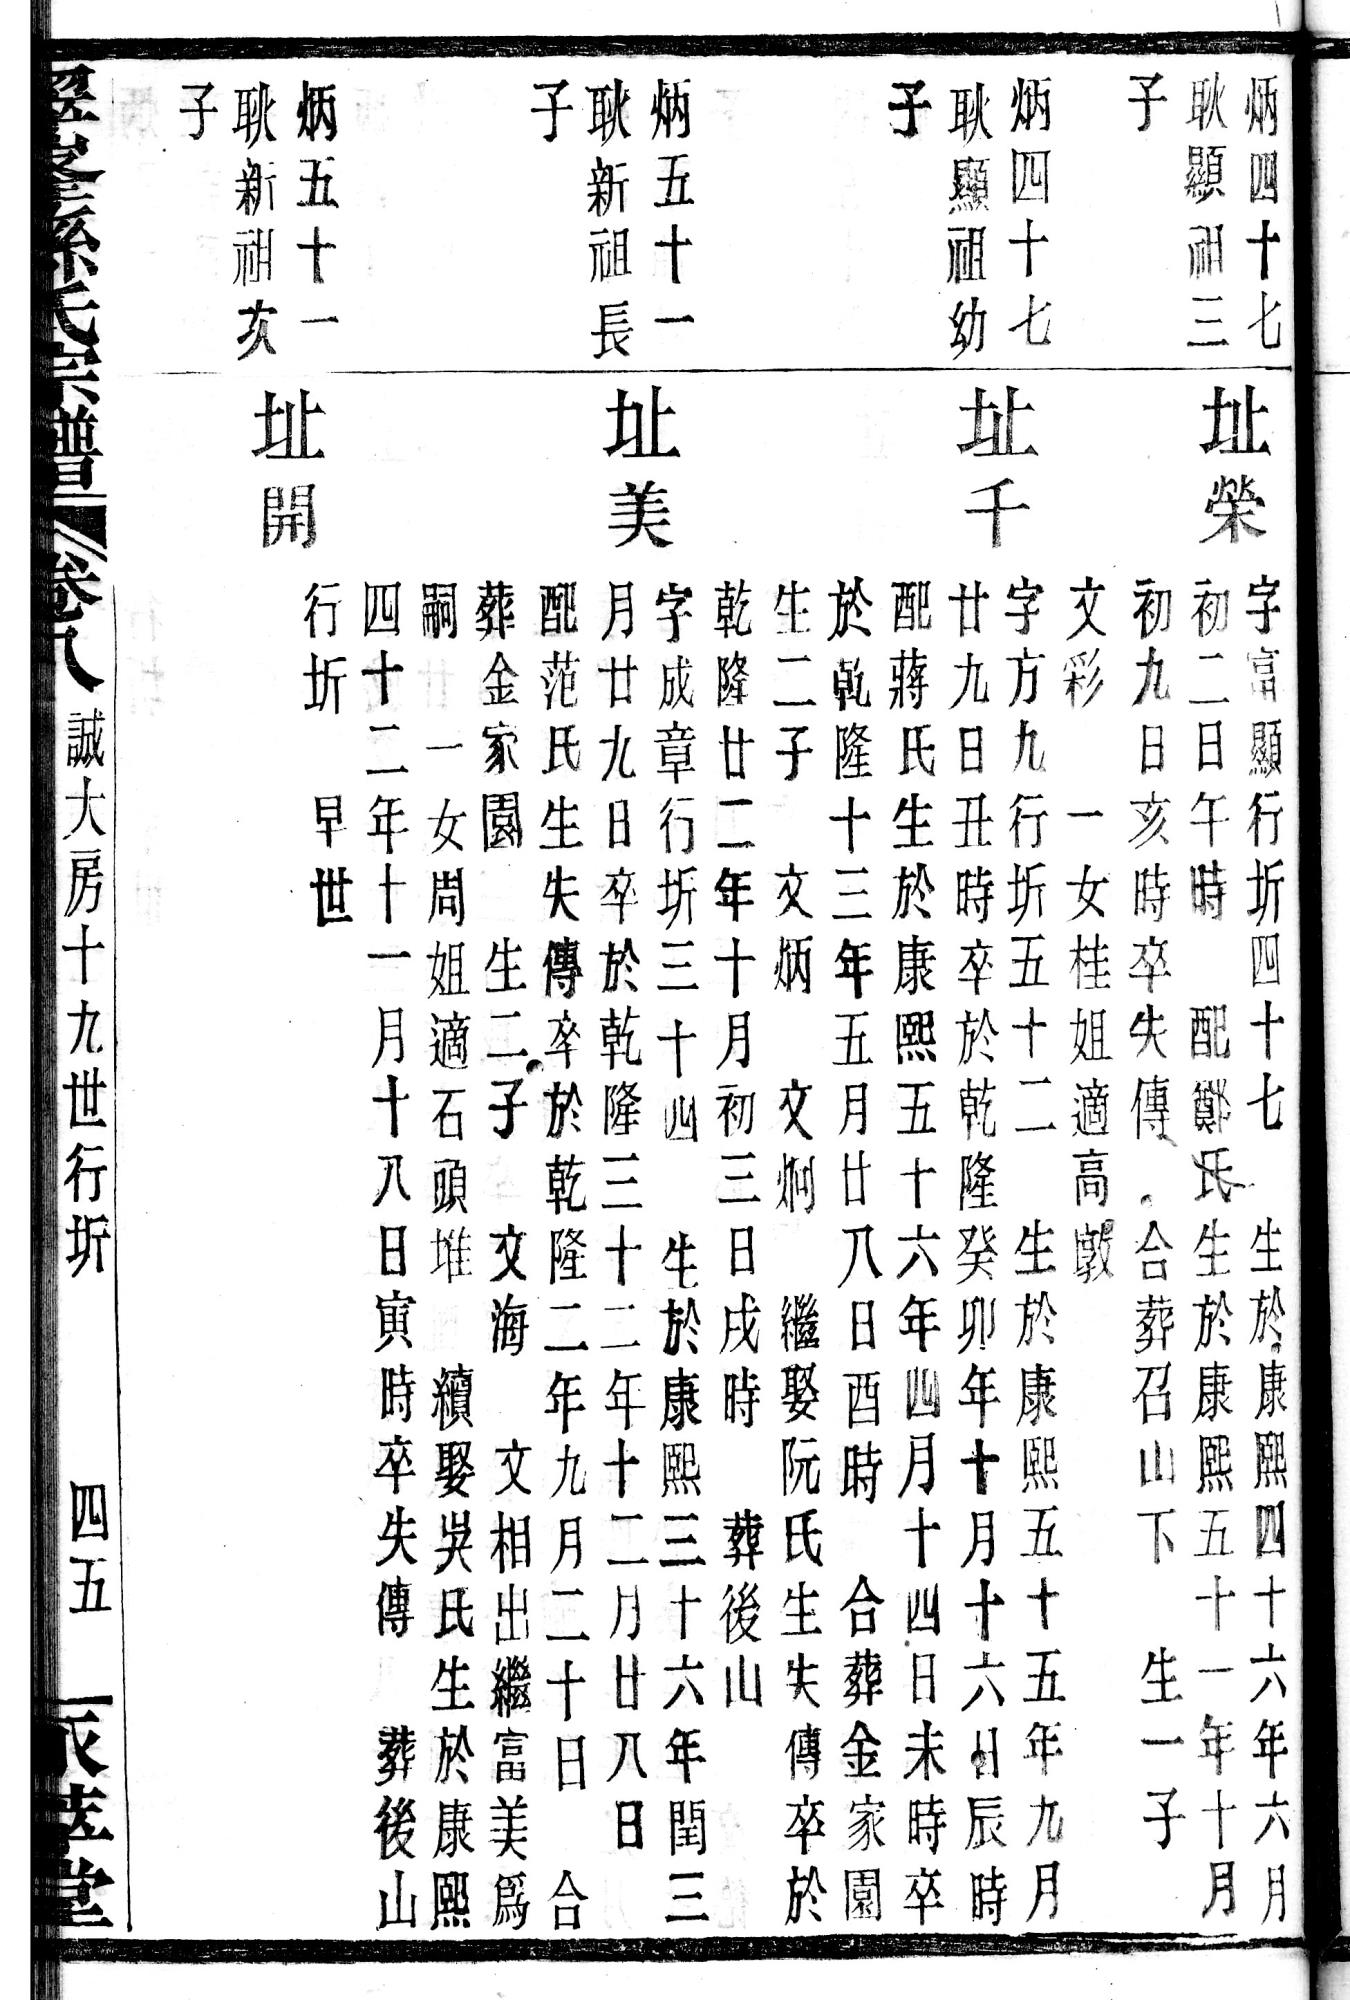 炳四十七
耿顯祖三
子
址榮
字富顯行圻四十七　生於康熙四十六年六月
初二日午時　配鄭氏生於康熙五十一年十月
初九日亥時卒失傳　合葬召山下　生一子
文彩　一女桂姐適高墩
炳四十七
耿顯祖幼
子
址千
字方九行圻五十二　生於康熙五十五年九月
廿九日丑時卒於乾隆癸卯年十月十六日辰時
配蔣氏生於康熙五十六年四月十四日未時卒
於乾隆十三年五月廿八日酉時　合葬金家園
生二子　文炳　文炯　繼娶阮氏生失傳卒於
乾隆廿二年十月初三日戌時　葬後山
炳五十一
耿新祖長
子
址美
字成章行圻三十四　生於康熙三十六年閏三
月廿九日卒於乾隆三十二年十二月廿八日
配范氏生失傳卒於乾隆二年九月二十日　合
葬金家園　生二子　文海　文相出繼富美爲
嗣　一女周姐適石頭堆　續娶吳氏生於康熙
四十二年十一月十八日寅時卒失傳　葬後山
炳五十一
耿新祖次
子
址開
行圻　早世
孫氏宗譜　卷八　誠大房十九世行圻　四五　堂